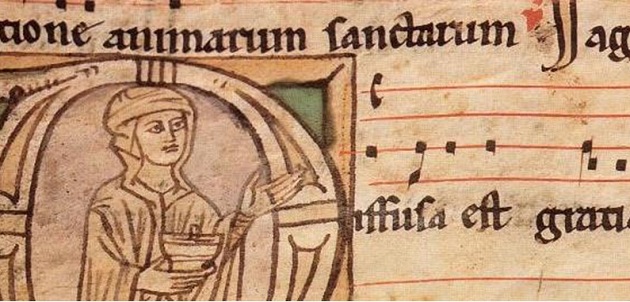 tione animarum sanctarum Mag
iffusa est gratia